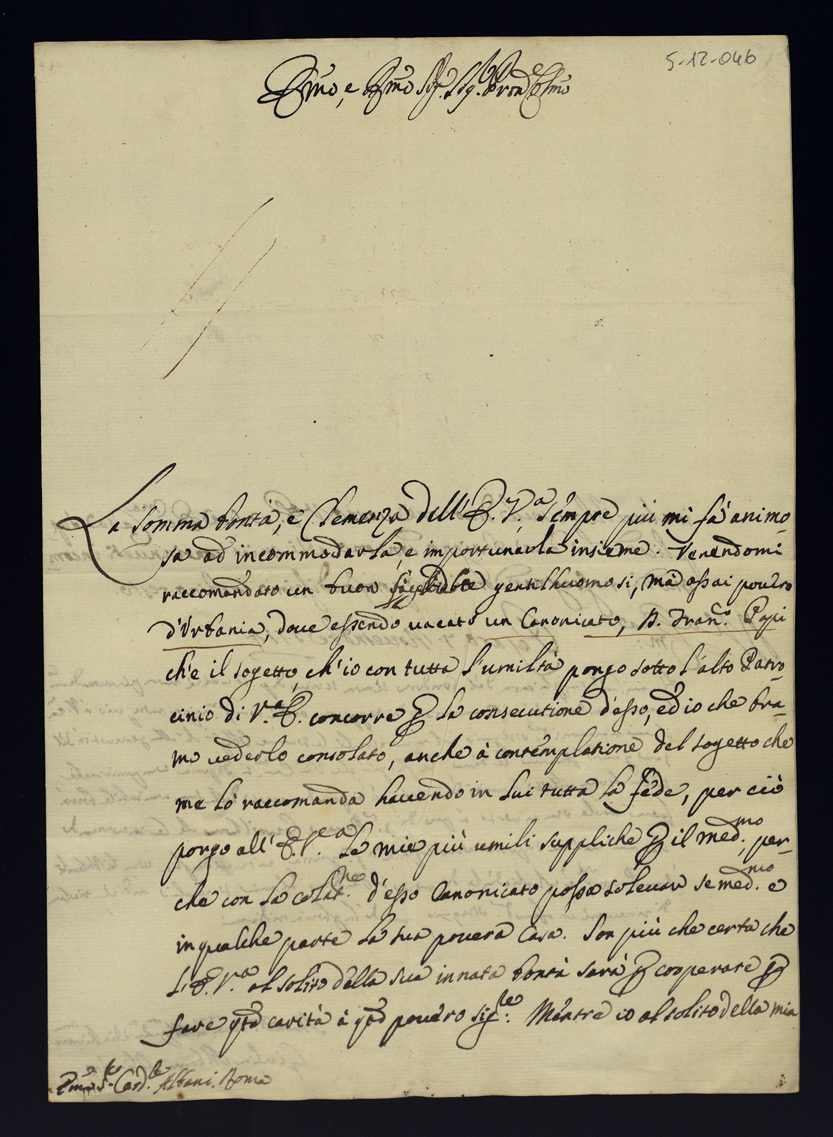 5-12-046
Emo, e Rmo Sig.r Sig.r Pron Colmo
La somma bontà, e Clemenza dell'E.V.a sempre più mi fà animo-
sa ad incommodarla, e importunarla insieme. Venendomi
raccomandato un buon gentilhuomo si, mà assai povero
d'Urbania, dove essendo vacato un Canonicato, D. Fran.co Papi
ch'è il sogetto, ch'io con tutta l'umiltà porgo sotto l'alto Patro
cinio di V.a E. concorre p la consecutione d'esso, ed io che bra-
mo vederlo consolato, anche à contemplatione del sogetto che
me lo raccomanda havendo in lui tutta la fede, per ciò
porgo all'E.V.a le mie più umili suppliche p il med.mo, per-
che con la colat.ne d'esso Canonicato possa solevar se med.mo e
in qualche parte la sua povera Casa. Son più che certa che
L'E.V.a al solito della sua innata bontà sarà p cooperare p
fare qta carità à qto povero sig.le. Mentre io al solito della mia
Emo S.r Card.le Albani. Roma